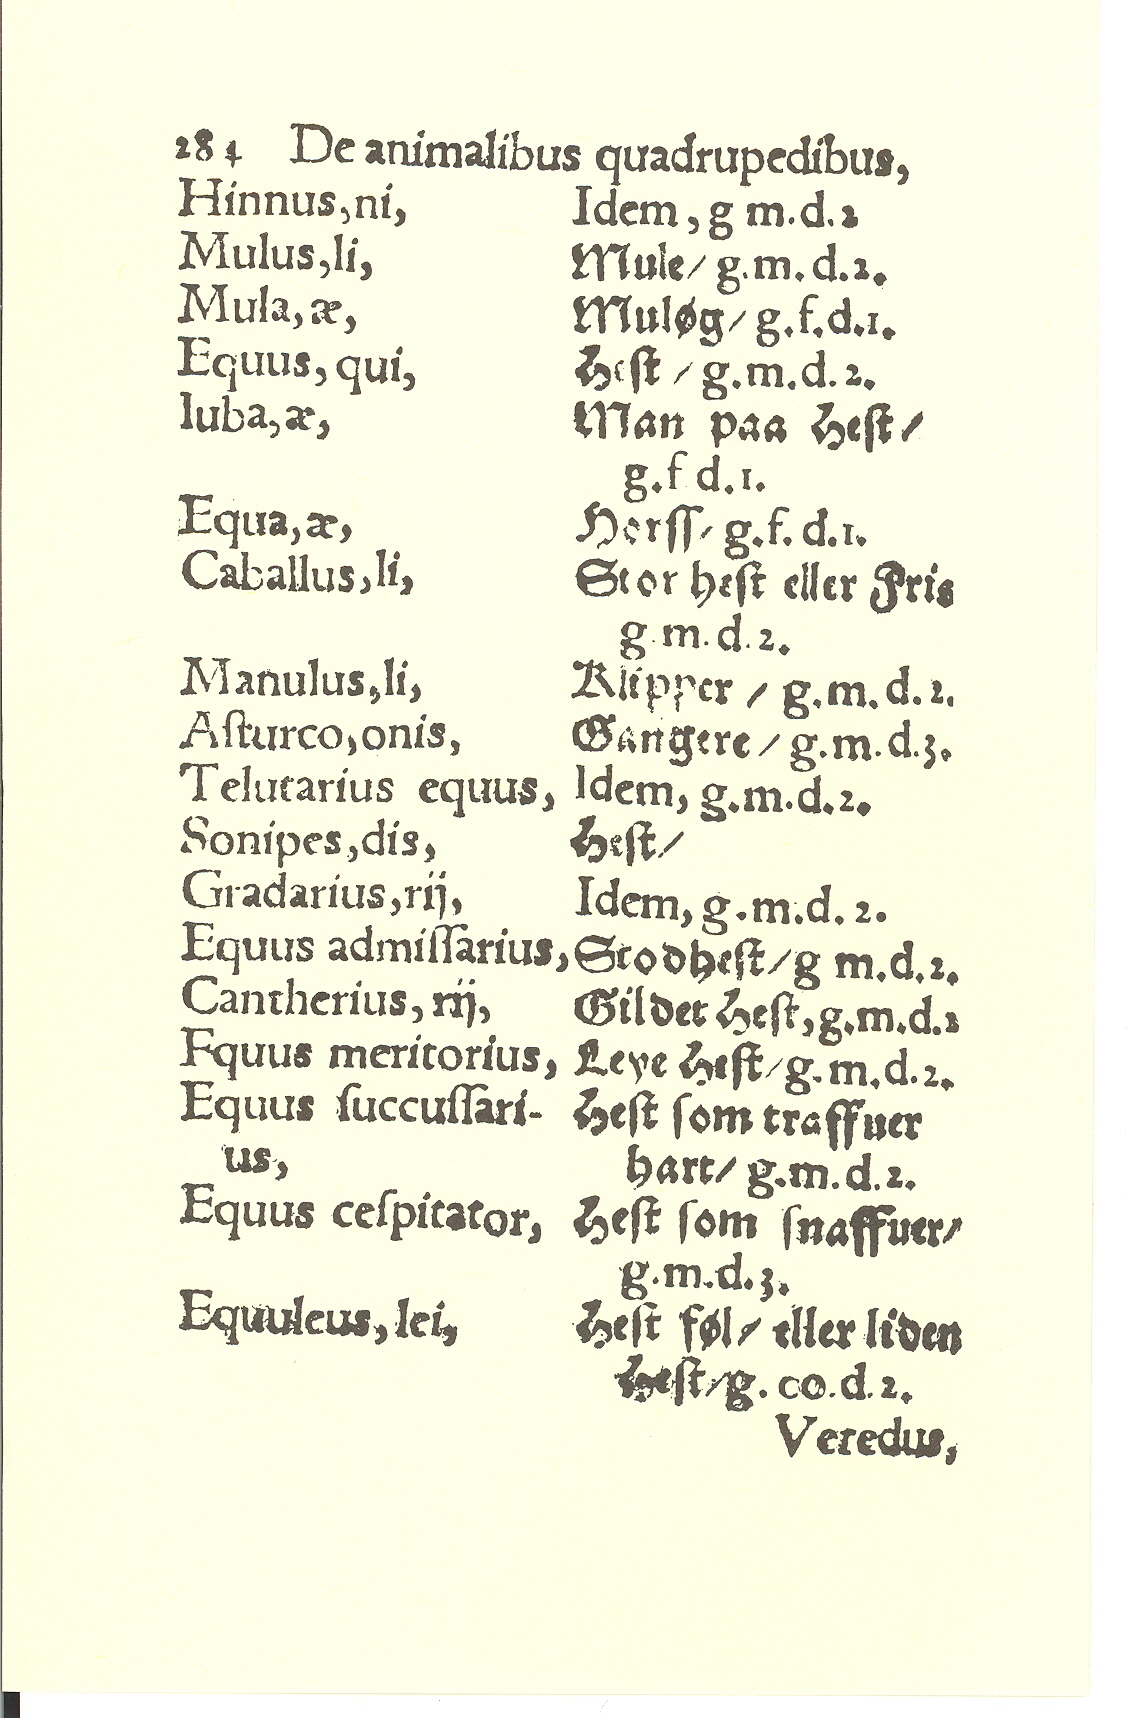 284 De animalibus quadrupedibus,
Hinnus,ni, Idem, g m.d.2
Mulus,li, Mule/ g.m.d.2.
Mula,æ, Muløg/ g.f.d.1.
Equus,qui, Hest / g.m.d.2.
Iuba,æ, Man paa Hest/
g.f d.1.
Equa,æ, Horſſ/ g.f.d.1.
Caballus,li, Stor heſt eller Fris
g.m.d.2.
Manulus,li, Klipper / g.m.d.2.
Aſturco,onis, Gangere/ g.m.d.3.
Telutarius equus, Idem, g.m.d.2.
Sonipes,dis, Heſt/
Gradarius,rij, Idem, g.m.d.2.
Equus admiſſarius, Stodheſt/g m.d.2.
Cantherius,rij, Gildet Heſt,g.m.d.2
Equus meritorius, Leye Heſt/g.m.d.2.
Equus ſuccuſſari- Heſt ſom traffuer
us, hart/ g.m.d.2.
Equus ceſpitator, Heſt ſom ſnaffuer/
g.m.d.3.
Equuleus,lei, Heſt føl/ eller liden
Heſt/g.co.d.2.
Veredus,